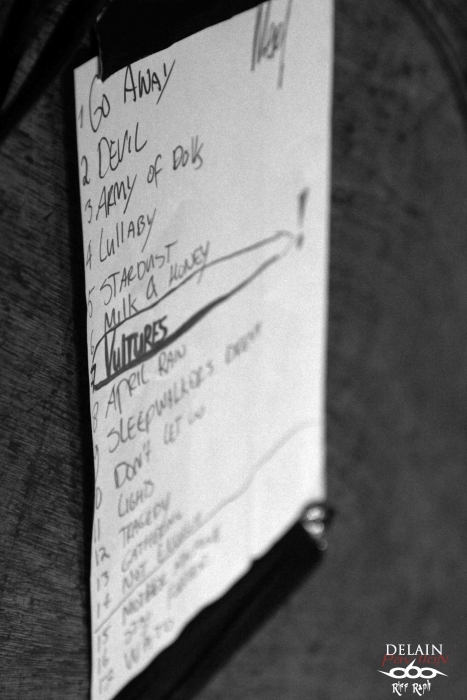 1 GO AWAY
2 DEVIL
3 ARMY OF DOLLS
4 LULLABY
5 STARDUST
6 MILK & HONEY
!
7 VULTURES
8 APRIL RAIN
9 SLEEPWALKERS DREAM
10 DON'T LET GO
11 LIGHTS
12 TRAGEDY
13 GATHERING
14 NOT ENOUGH
15 MOTHER MACHINE
DELAIN
Riff Raph